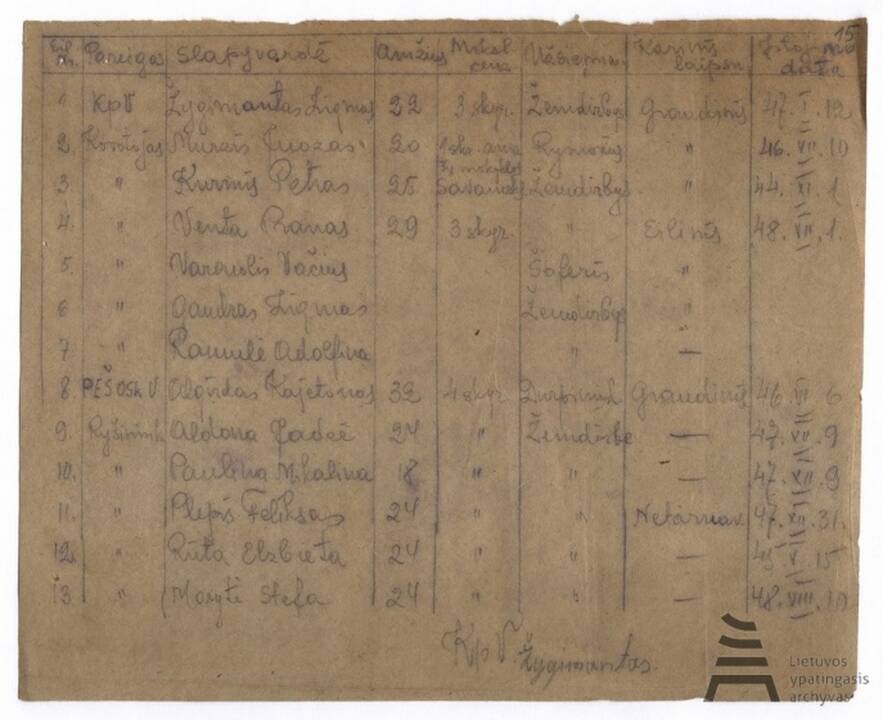 15
Eil. Nr. Pareigos Slapyvardė Amžius Moksl cenz Užsiėmim. Karinis laipsn. Įstoj. mo data
1 KpV Žygimantas Zigmas 32 3 skyr. Žemdirbys Grandinis 47. I. 12
2. Kovotojas Juozas 20 " 46. VII. 10
3. " Kurmis Petras 25 Žemdirbys " 44. XI. 1
4. " Venta Pranas 29 3 skyr. " Eilinis 48. VII. 1.
5. " Vačius Šoferis "
6 " Gandras Zigmas Žemdirbys "
7 " Ramutė Adolfina " —
8. PĖŠ OSK V Algirdas Kajetonas 32 4 skyr Grandinis 46. VI 6
9. Ryšinink Aldona 24 " Žemdirbė — 47. XII. 9
10. " Paulina Mikalina 18 " " — 47. XII. 9
11. " Feliksas 24 " " Netarnav. 47. XII. 31.
12. " Rūta Elzbieta 24 " " — V 15
13 " Marytė Stefa 24 " " — 48. VIII. 10
KpV Žygimantas.
Lietuvos
ypatingasis
archyvas